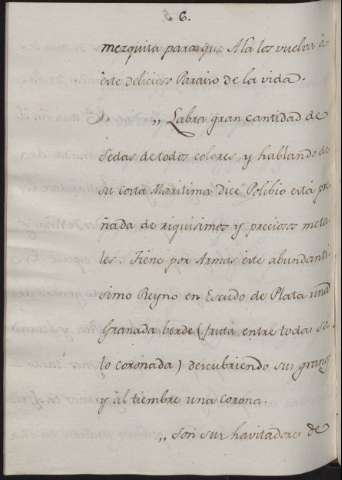 6.
mezquita para que Ala los vuelva à
este delicioso Paraiso de la vida.
,, Labra gran cantidad de
Sedas de todos colores, y hablando de
su costa Maritima dice Polibio está pre
ñada de riquisimos y preciosos meta
les. Tiene por Armas este abundanti
simo Reyno en Escudo de Plata una
Granada berde (fruta entre todas so
lo coronada) descubriendo sus granos
y al tiembre una corona.
,, Son sus havitadores de